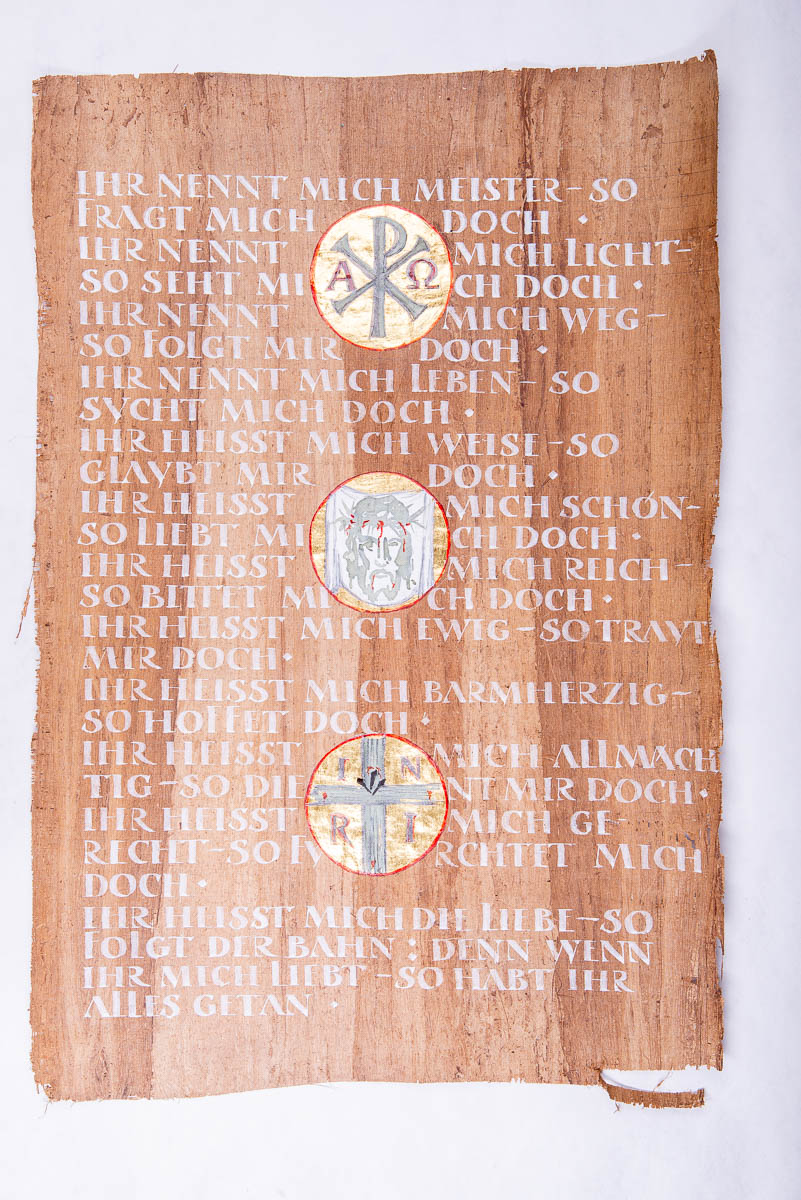 IHR NENNT MICH MEISTER – SO
FRAGT MICH DOCH ·
IHR NENNT MICH LICHT –
SO SEHT MICH DOCH ·
IHR NENNT MICH WEG –
SO FOLGT MIR DOCH ·
IHR NENNT MICH LEBEN – SO
SVCHT MICH DOCH ·
IHR HEISST MICH WEISE – SO
GLAVBT MIR DOCH ·
IHR HEISST MICH SCHÖN –
SO LIEBT MICH DOCH ·
IHR HEISST MICH REICH –
SO BITTET MICH DOCH ·
IHR HEISST MICH EWIG – SO TRAVT
MIR DOCH ·
IHR HEISST MICH BARMHERZIG –
SO HOFFET DOCH ·
IHR HEISST MICH ALLMÄCH
TIG – SO DIENT MIR DOCH ·
IHR HEISST MICH GE-
RECHT – SO FVRCHTET MICH
DOCH ·
IHR HEISST MICH DIE LIEBE – SO
FOLGT DER BAHN : DENN WENN
IHR MICH LIEBT – SO HABT IHR
ALLES GETAN ·
A Ω
I N
R I